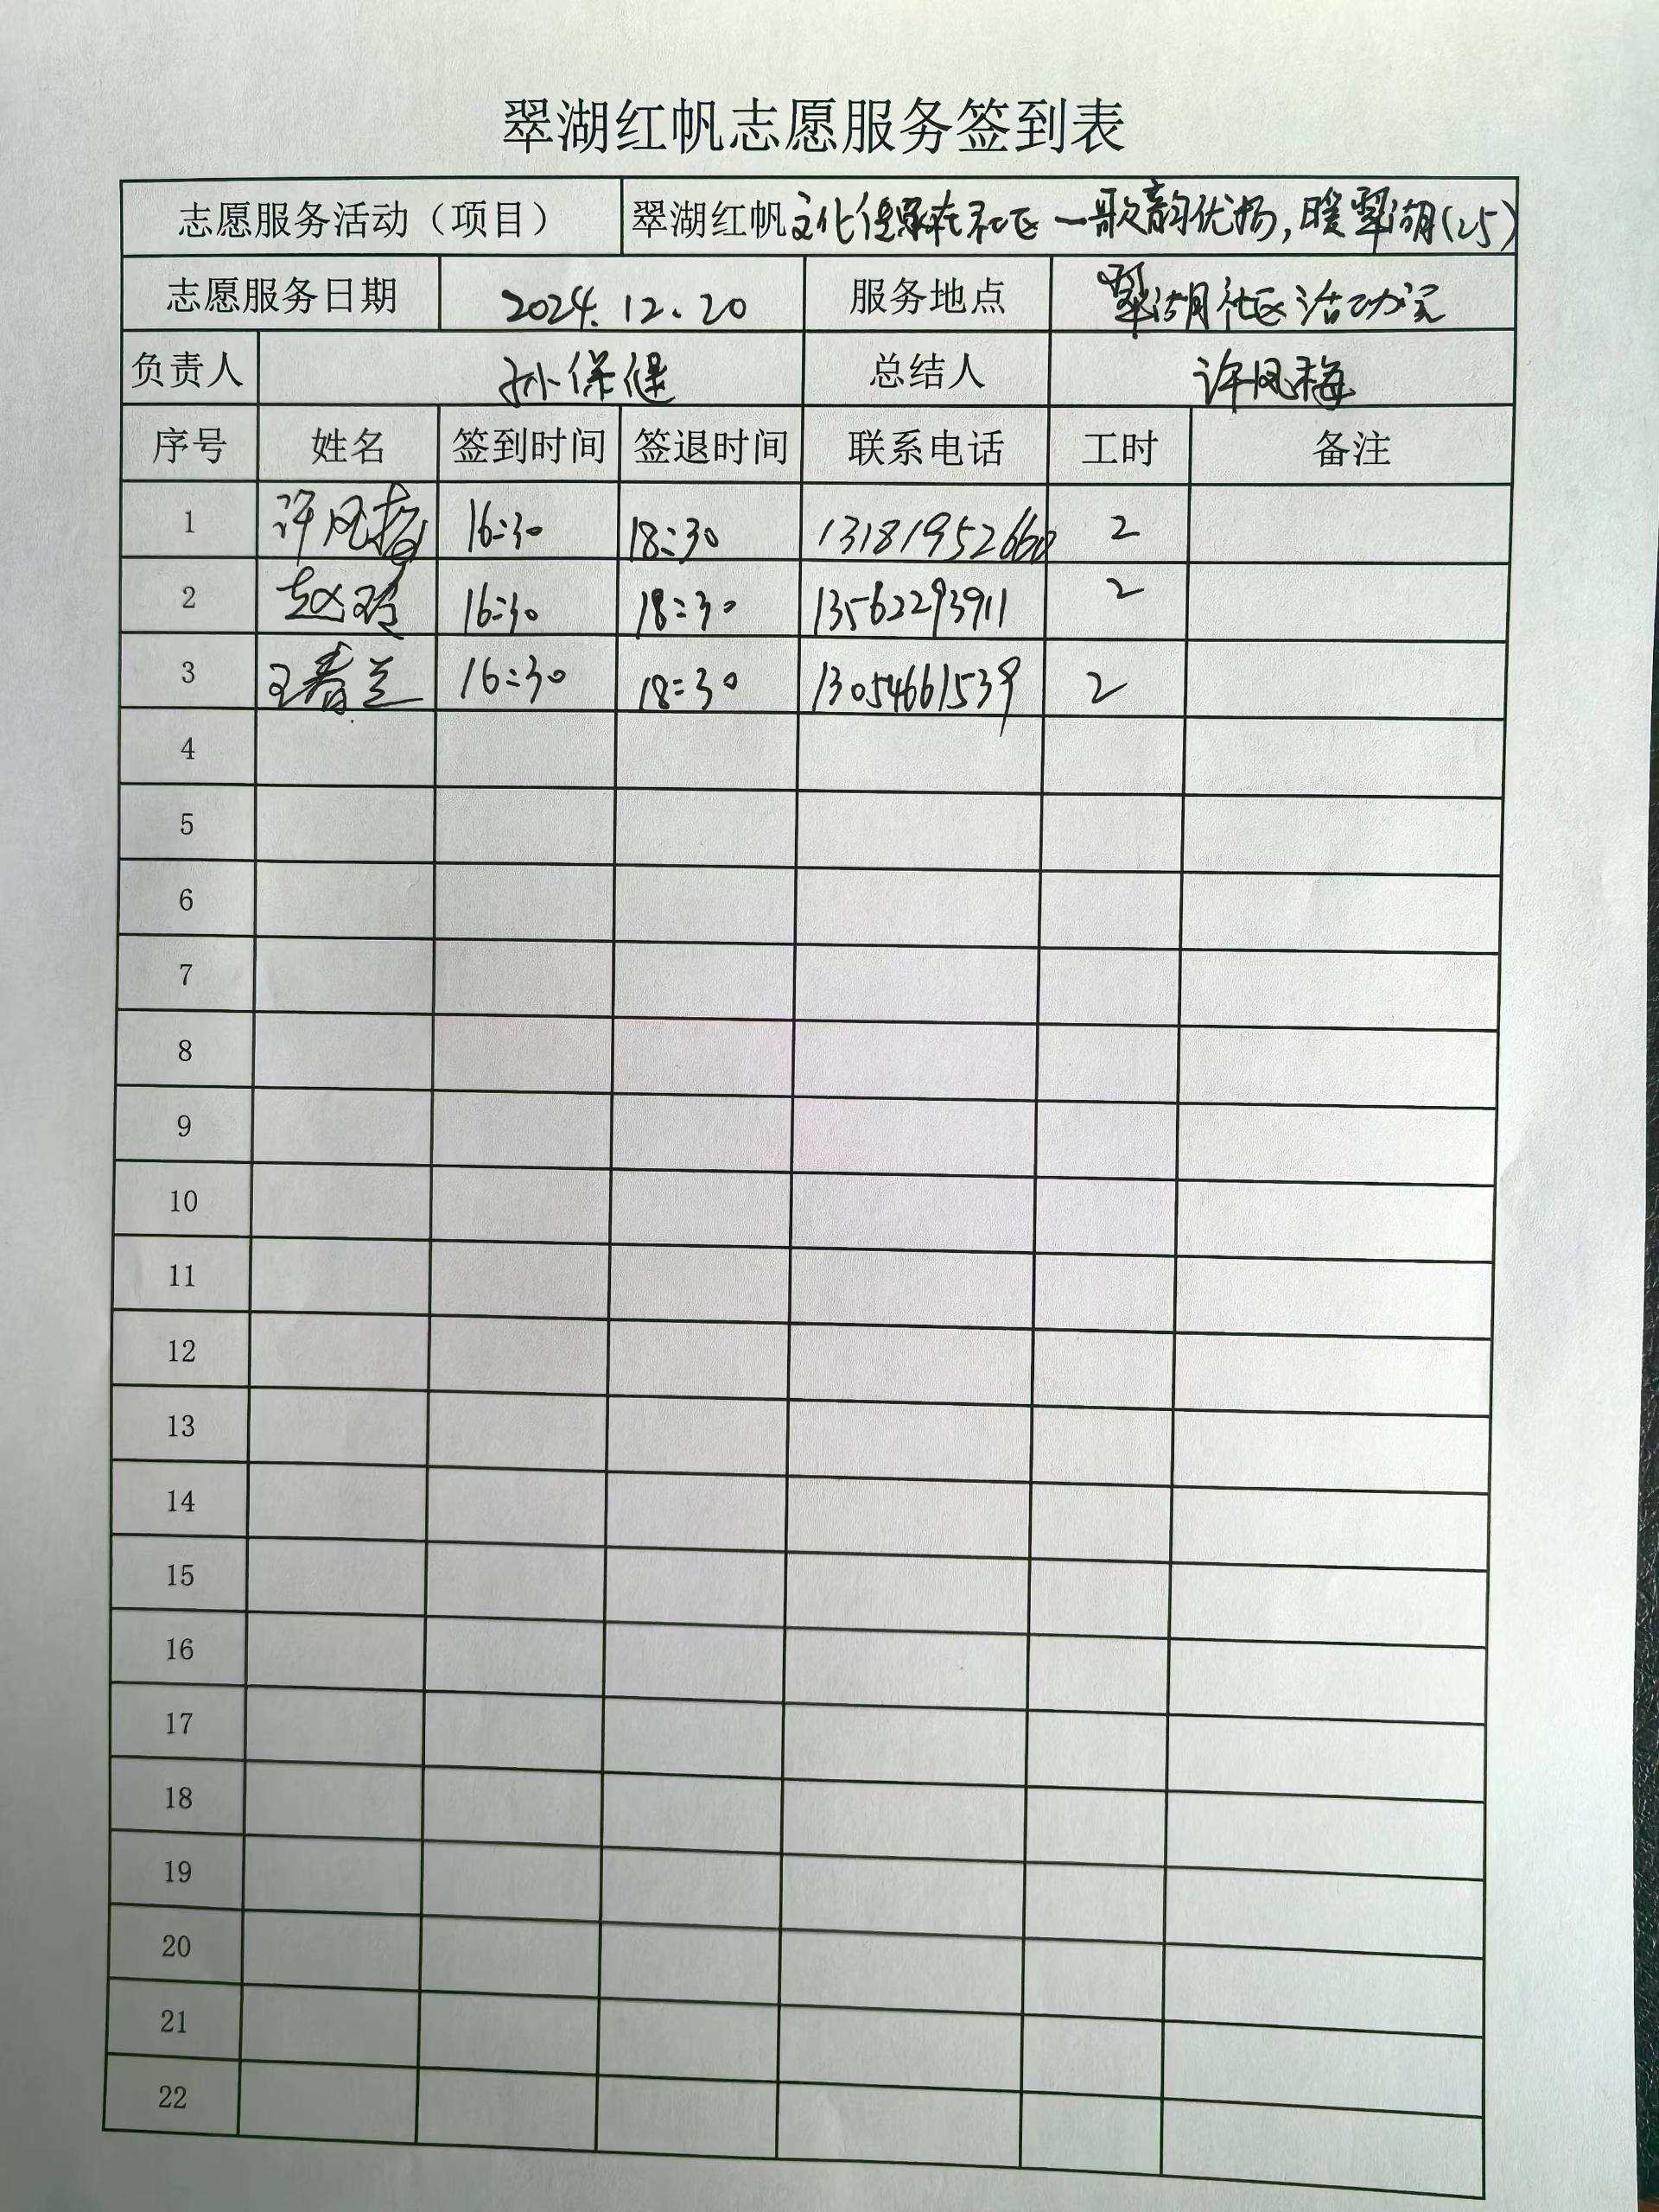 翠湖红帆志愿服务签到表
志愿服务活动（项目） 翠湖红帆文化传承在社区一歌韵优扬,暖翠湖(25)
志愿服务日期 2024.12.20 服务地点 翠湖社区活动室
负责人 孙保健 总结人 许凤梅
序号 姓名 签到时间 签退时间 联系电话 工时 备注
1 许凤梅 16:30 18:30 13181952660 2
2 赵 16:30 18:30 13562293911 2
3 王春兰 16:30 18:30 13054661539 2
4
5
6
7
8
9
10
11
12
13
14
15
16
17
18
19
20
21
22